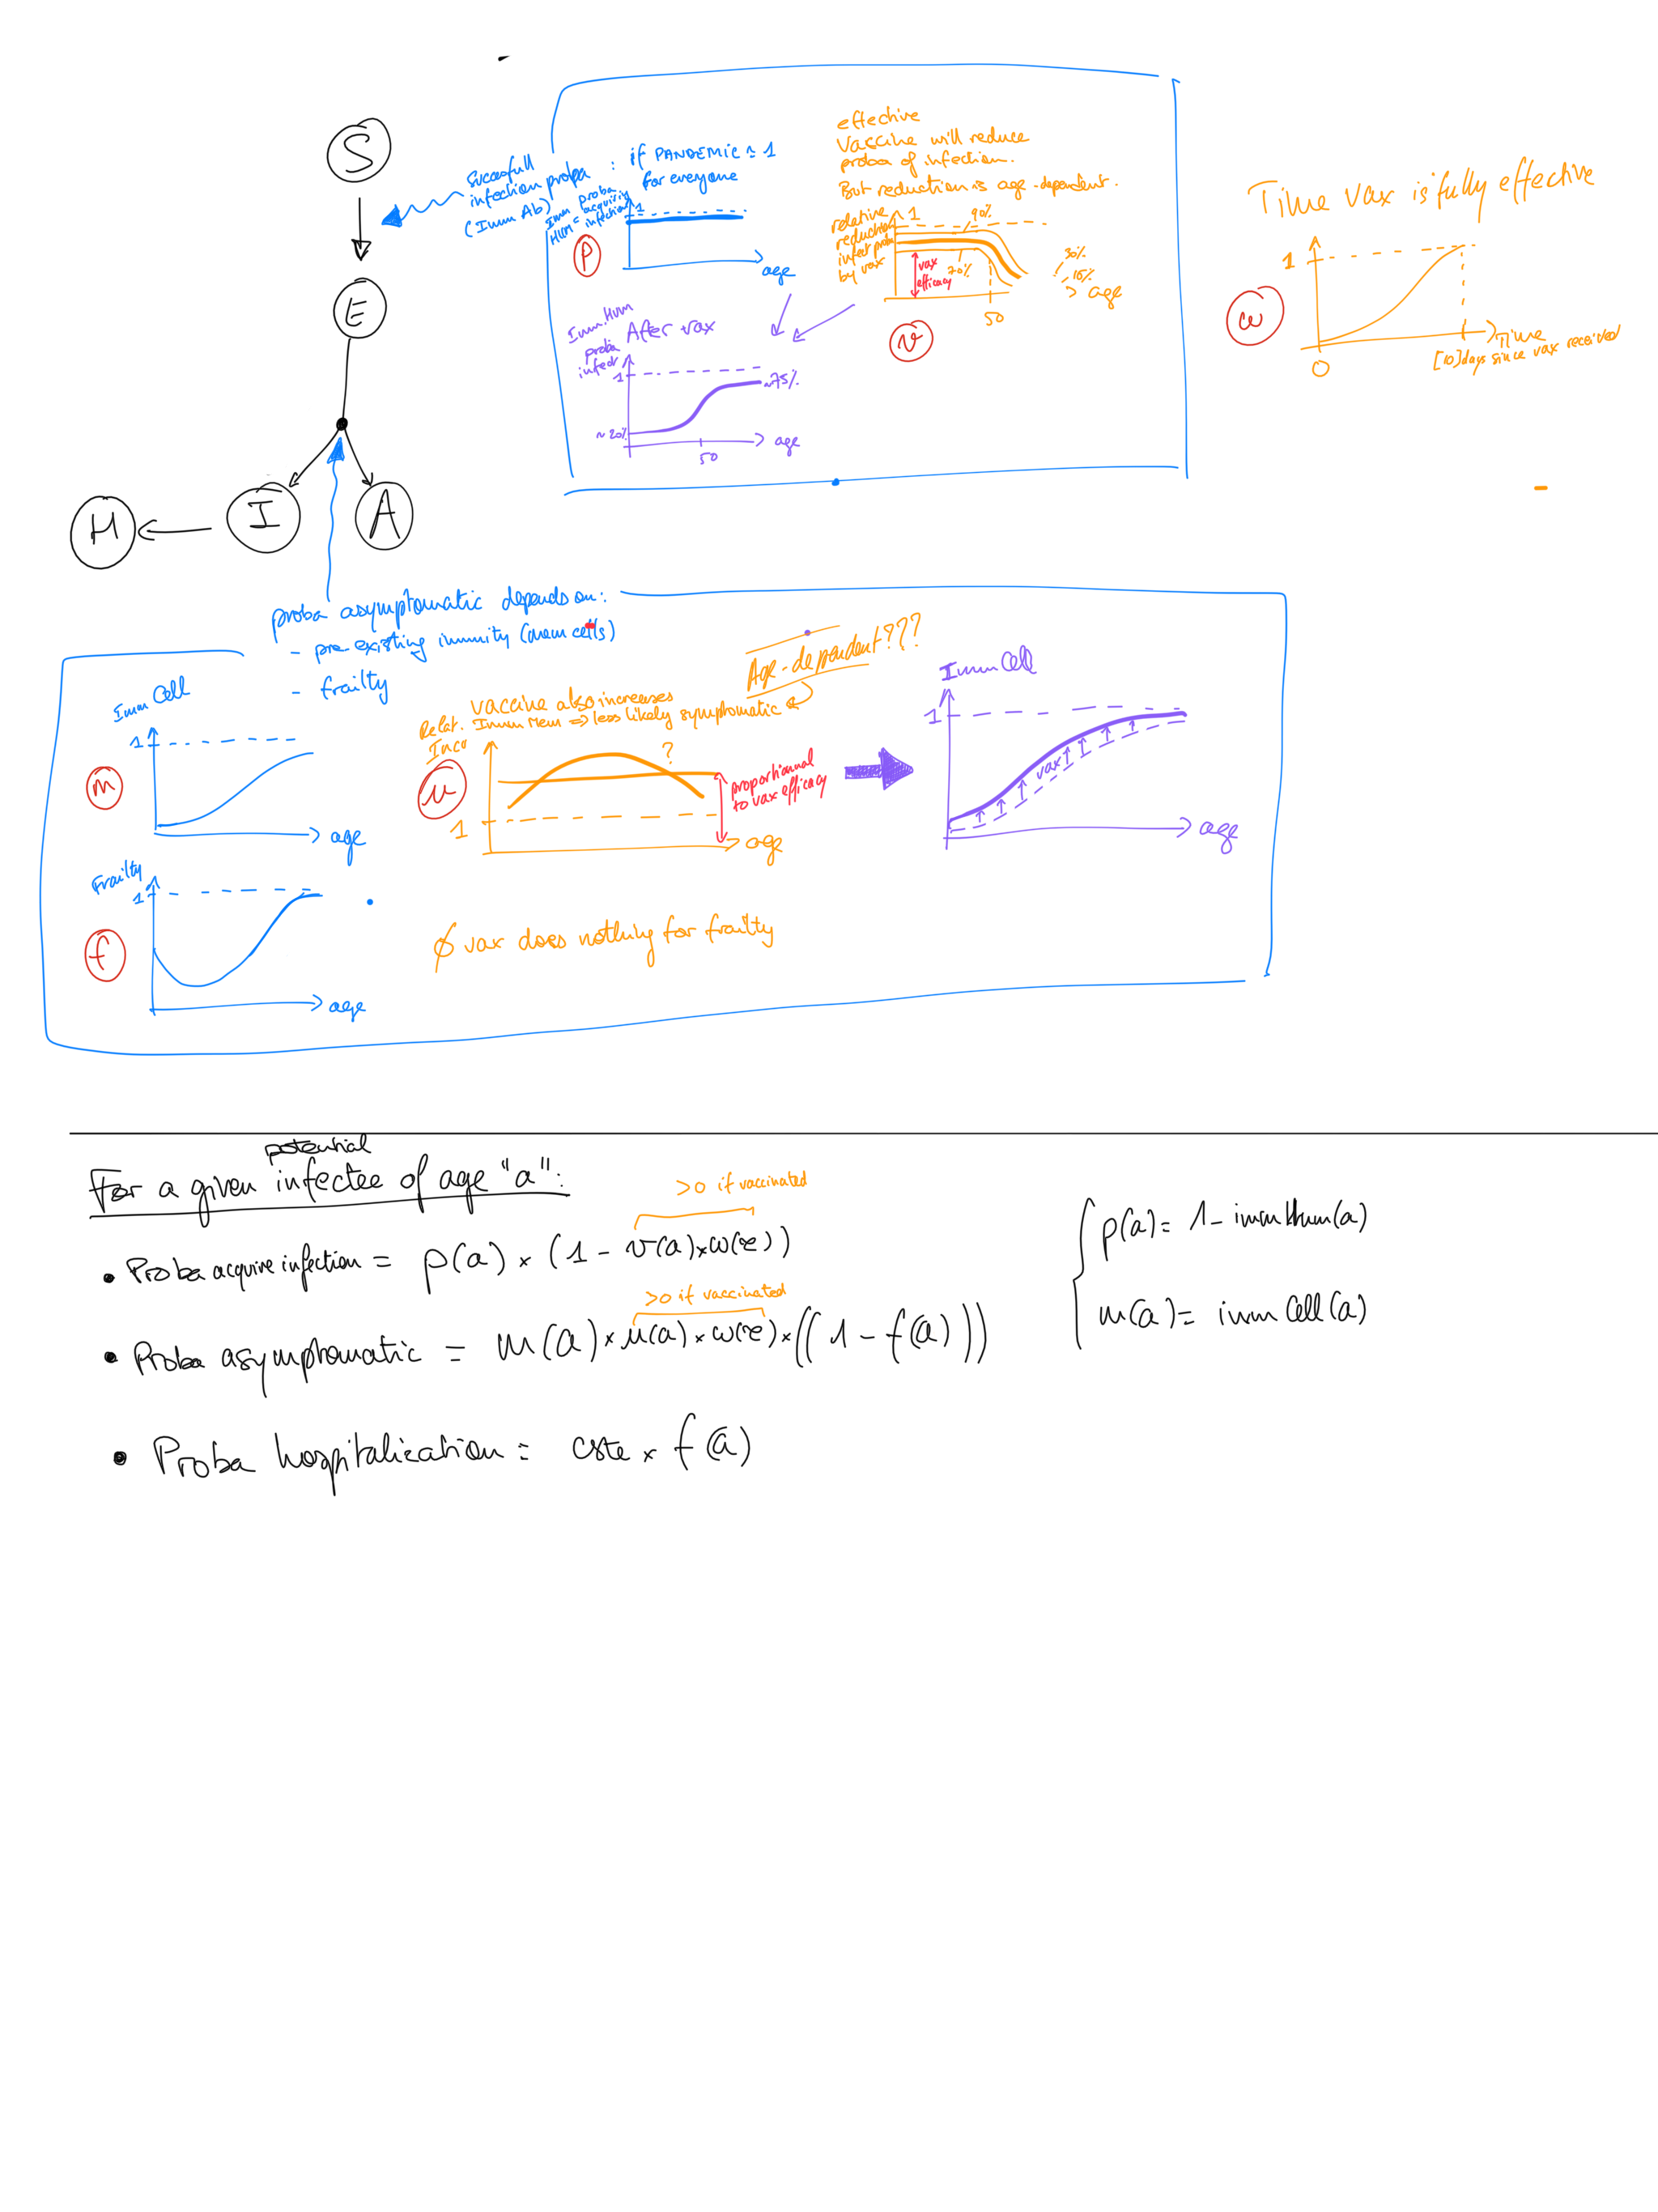 S
E
I
A
H
Successfull
infection proba :
(Imm Ab)
if PANDEMIC ≃ 1
for everyone
Imm proba
Hum = acquiring
infection
1
p
age
effective
Vaccine will reduce
proba of infection.
But reduction is age-dependent.
relative
reduction
infect proba
by vax
1
90%
70%
vax
efficacy
30%
10%
age
50
v
Imm.Hum
After vax
proba
infect
1
~75%
~20%
50
age
Time vax is fully effective
1
ω
0
Time
[10] days since vax received
proba asymptomatic depends on:
- pre-existing immunity (mem cells)
- frailty
Imm Cell
1
m
age
Frailty
1
f
age
Age-dependent???
vaccine also increases
Relat. Imm Mem => less likely symptomatic
?
u
1
age
proportionnal
to vax efficacy
Imm Cell
1
vax
age
∅ vax does nothing for frailty
potential
For a given infectee of age "a":
>0 if vaccinated
• Proba acquire infection = p(a) × (1 - v(a)×ω(τ))
>0 if vaccinated
• Proba asymptomatic = m(a) × u(a) × ω(τ) × ((1 - f(a)))
• Proba hospitalization = cste × f(a)
p(a) = 1 - immHum(a)
m(a) = imm Cell(a)